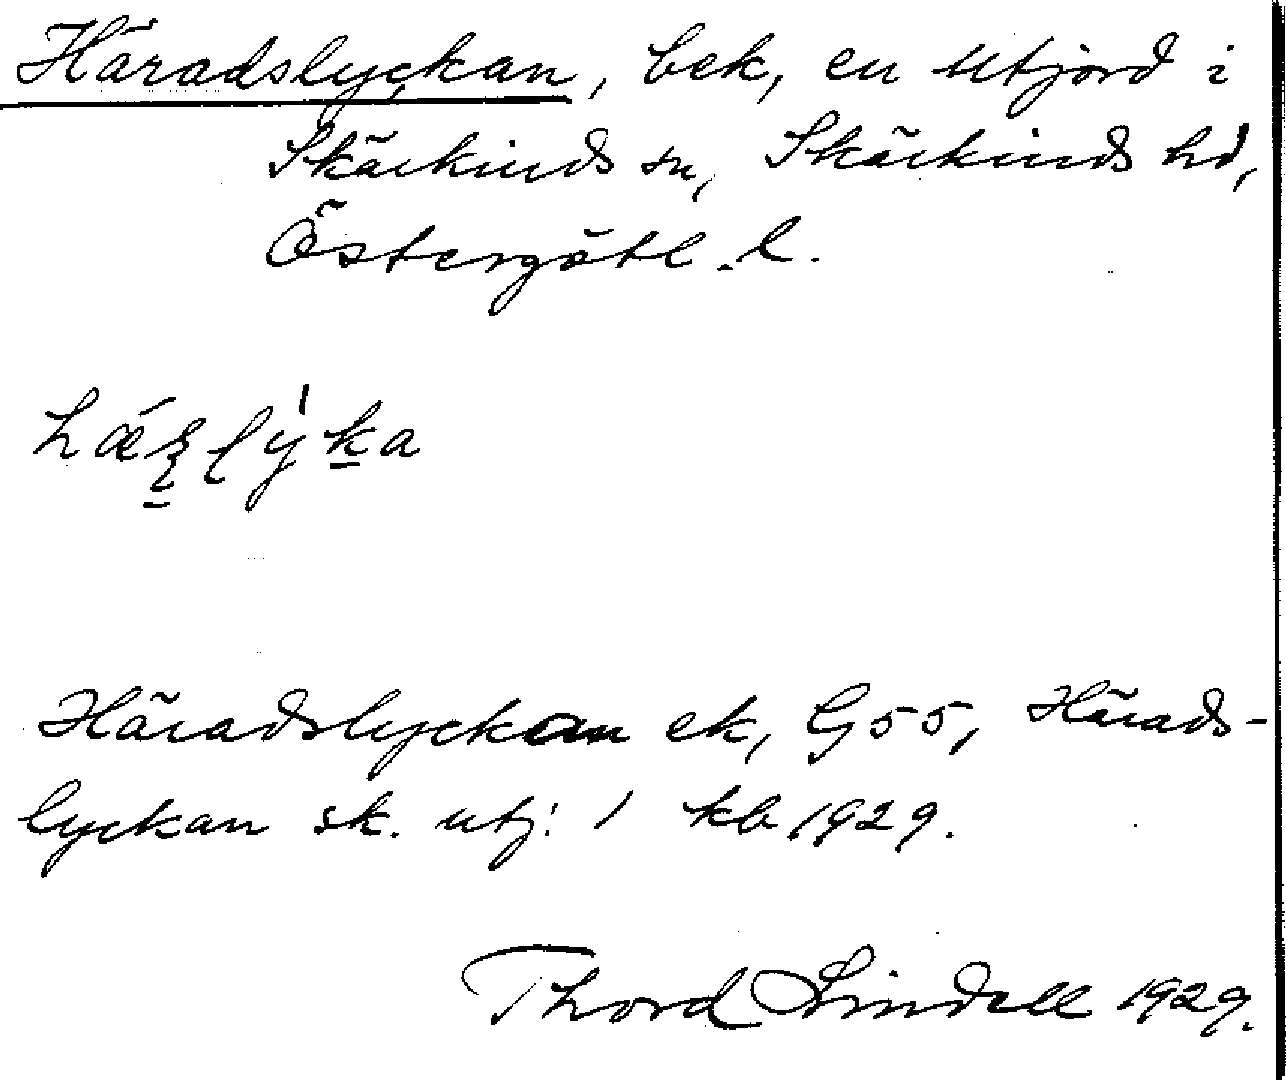 Häradslyckan, bek, en utjord i
Skärkinds sn, Skärkinds hd,
Östergötl. l.
Häradslyckan ek, G55, Härads-
lyckan sk. utj. 1 kb 1929.
Thord Lindell 1929.